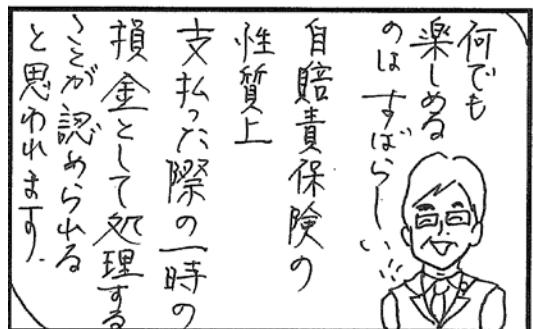 何でも
楽しめる
のは すばらしい
自賠責保険の
性質上
支払った際の一時の
損金として処理する
ことが認められる
と思われます.